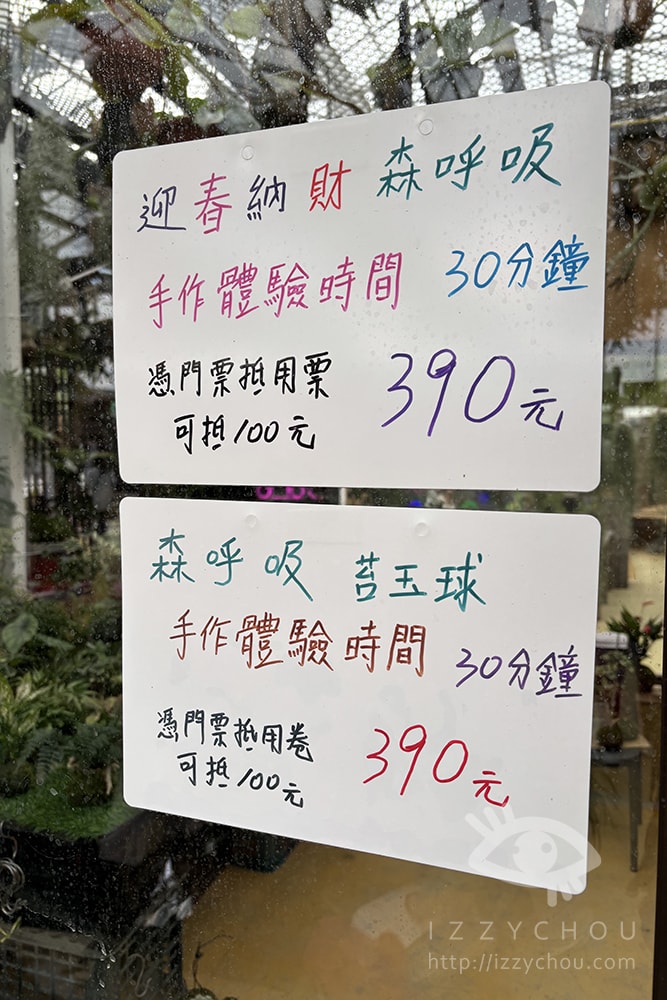 迎春納財 森呼吸
手作體驗時間 30分鐘
憑門票抵用票
可抵100元
390元
森呼吸 苔玉球
手作體驗時間 30分鐘
憑門票抵用卷
可抵100元
390元
IZZYCHOU
http://izzychou.com